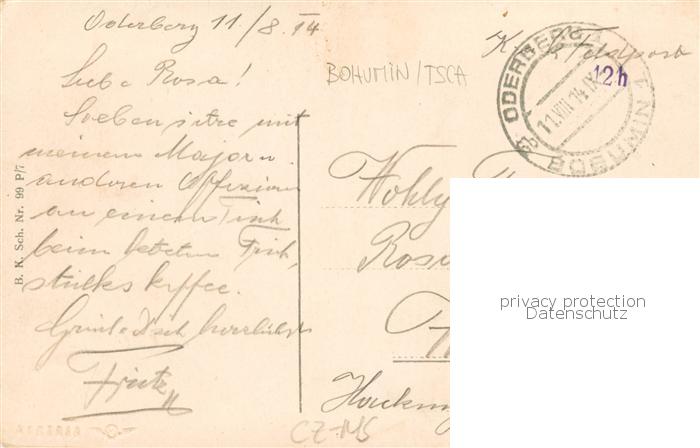 Oderberg 11./8. 14
K. k. Feldpost
Liebe Rosa!
Soeben sitze mit
meinem Major u.
anderen Offizieren
an einem Tisch
beim letzten Früh-
stückskaffee.
Grüsse Dich herzlichst
Fritz
BOHUMIN/TSCH
ODERBERG 1
11.VIII 14 IX
12h
BOGUMIN 1
B. K. Sch. Nr. 99 P/7
Wohlg
Rosa
CZ-145
privacy protection
Datenschutz